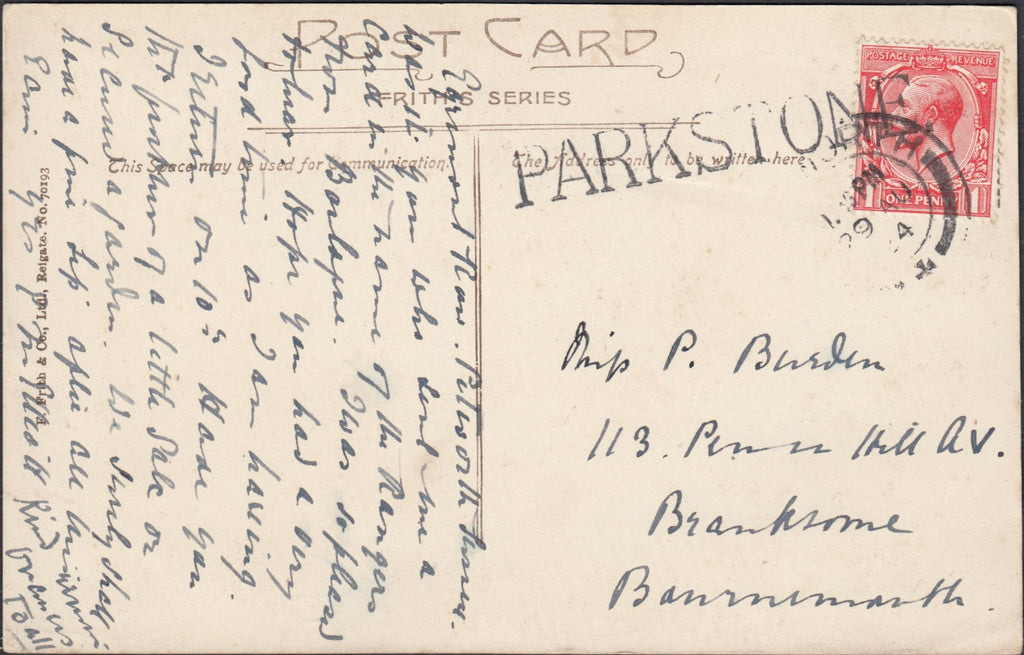 POST CARD
FRITH'S SERIES
This Space may be used for Communication.
The Address only to be written here
PARKSTONE
POSTAGE REVENUE
1 ONE PENNY 1
PM
29
F. Frith & Co., Ltd., Reigate. No. 70193
Egremont Row. Petworth Sussex.
Was it you who sent me a
card in the name of the Rangers
from Boulogne. I was so pleased
to hear. Hope you had a very
good time as I am having
I return on 10th Have you
the of a little Sale or
a garden. We truly shall
have a fine after all
Kind
to all
Miss P. Burden
113. Penn Hill Av.
Branksome
Bournemouth.